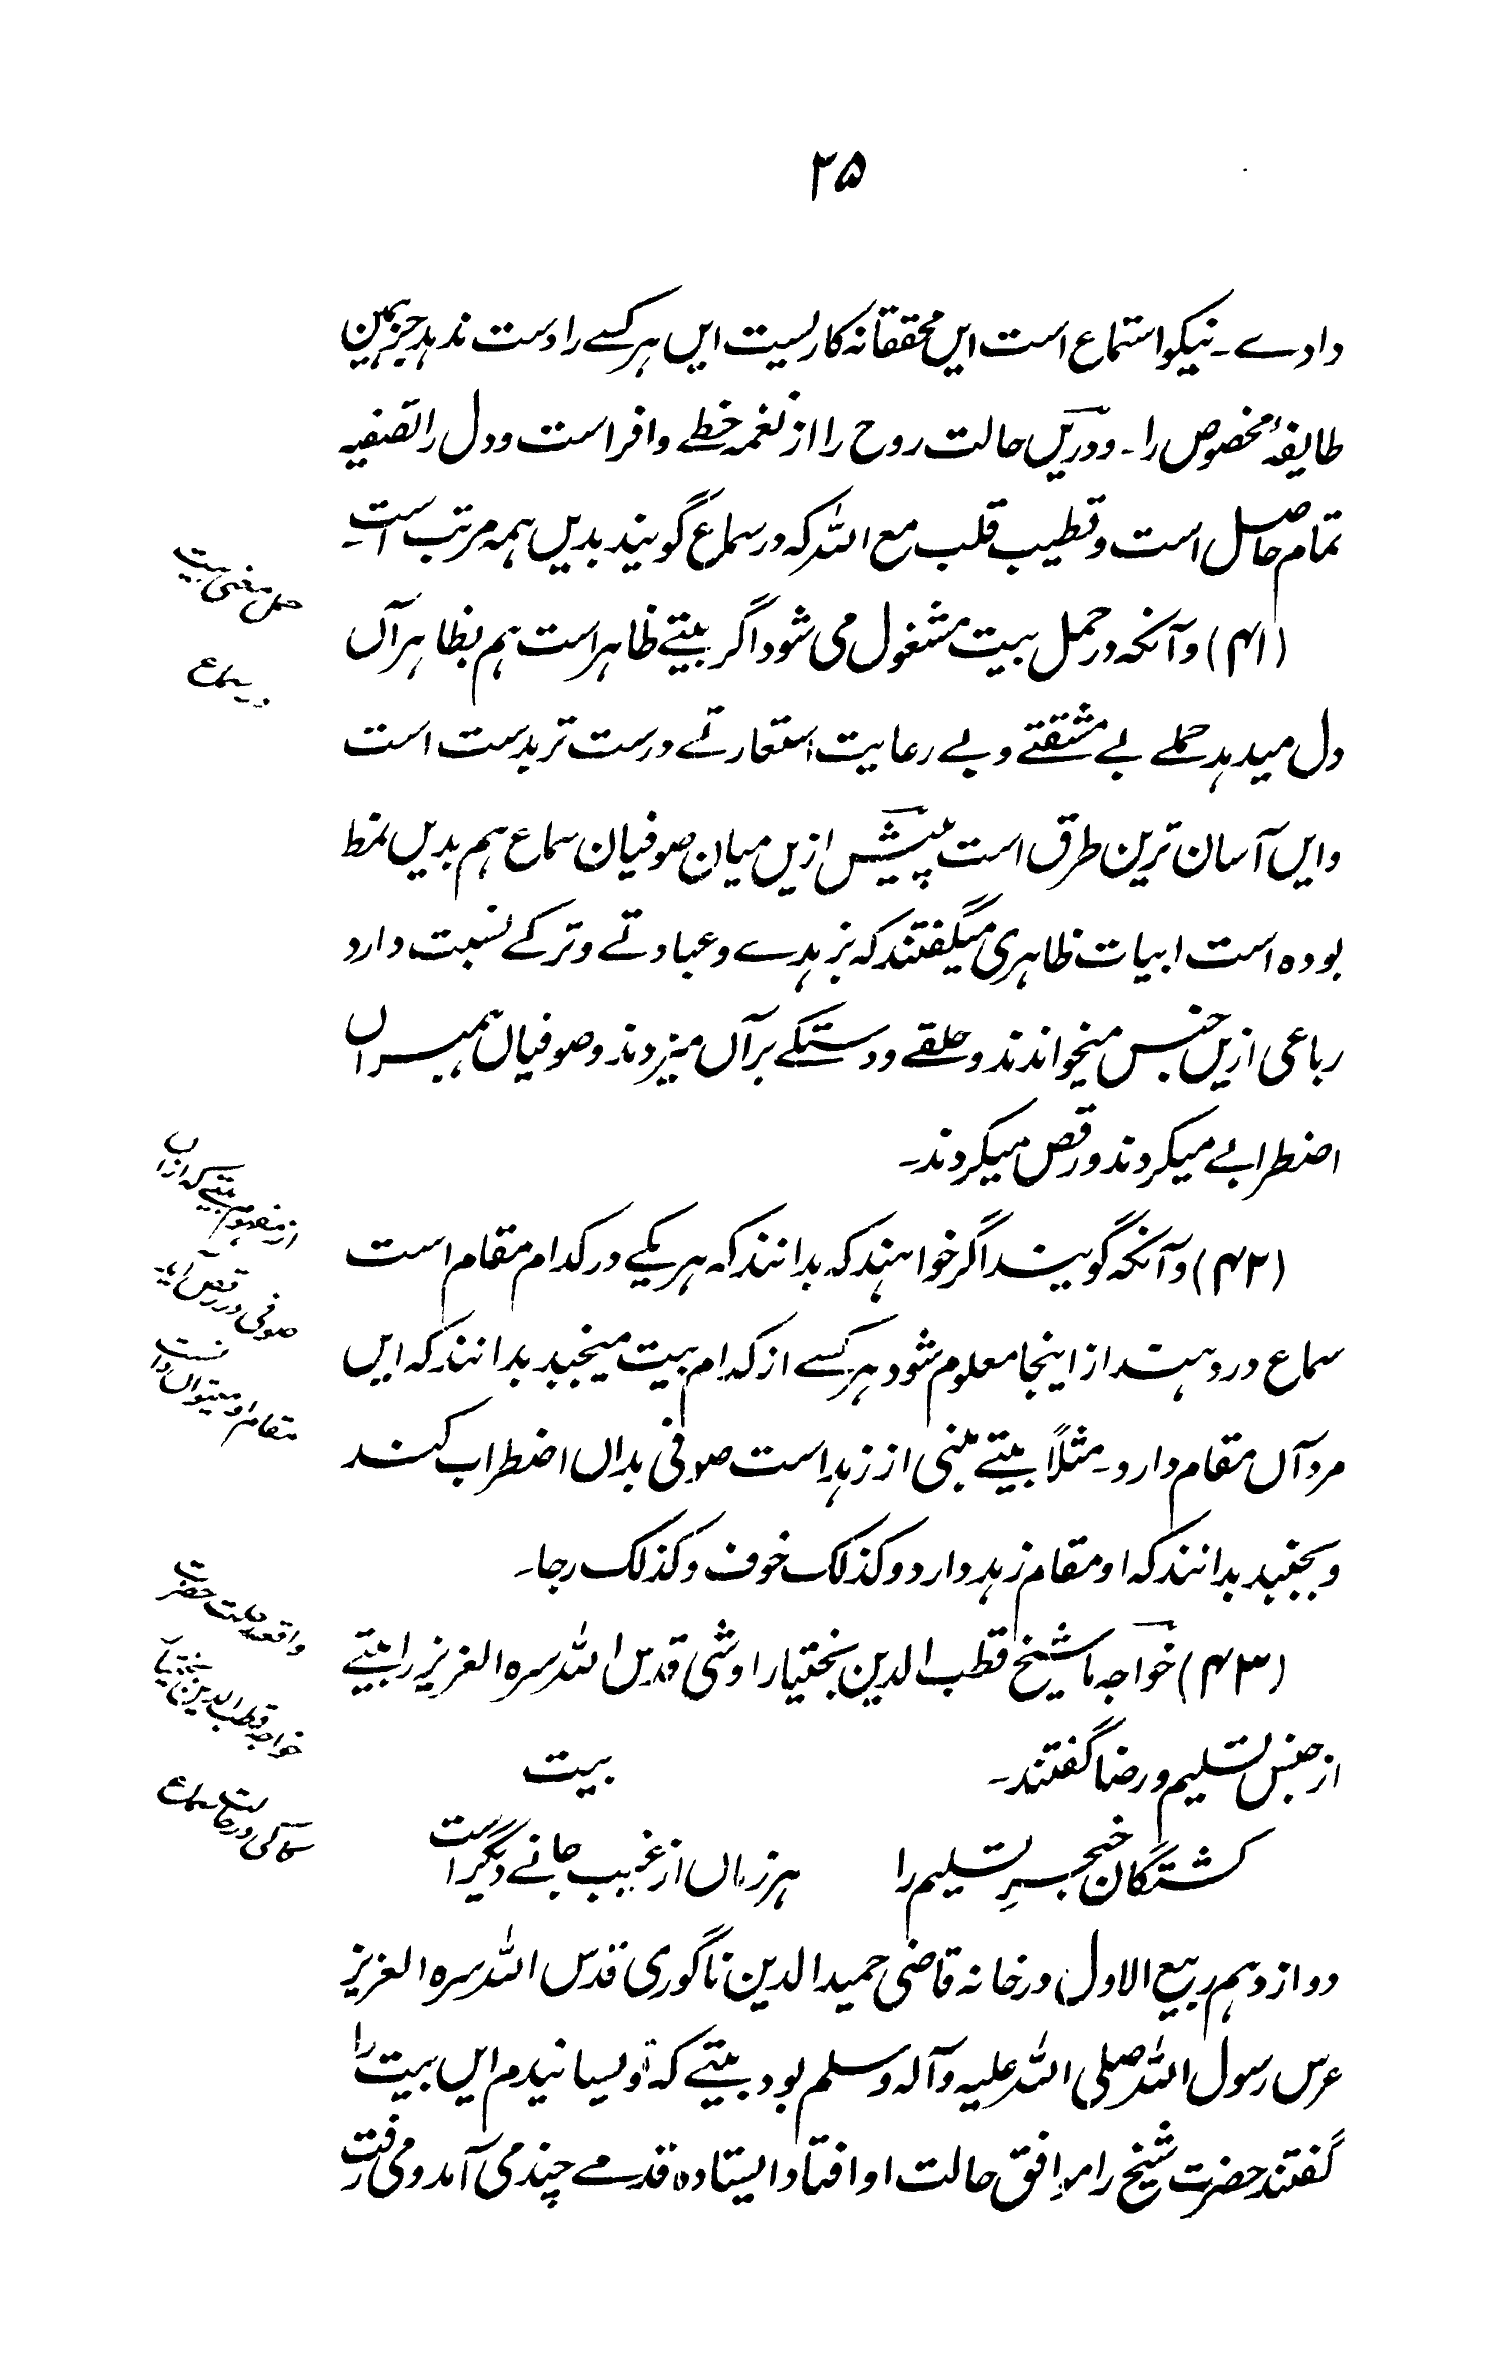 ۲۵
دادے۔ نیکو استماع است ایں محققانہ کاریست ایں ہر کسے را دست ندہد جز ہمین
طایفۂ مخصوص را۔ و دریں حالت روح را از نغمہ خطے وافر است و دل را تصفیہ
تمام حاصل است و تطییب قلب مع اللہ کہ در سماع گویند بدیں ہمہ مرتب است۔
حمل معنی بیت
در سماع
(۴۱) و آنکہ در حمل بیت مشغول می شود اگر بیتے ظاہر است ہم بظاہر آں
دل میدہد حملے بے مشقتے و بے رعایت استعارتے درست تر بدست است
وایں آسان ترین طرق است پیش ازیں میان صوفیان سماع ہم بدیں نمط
بودہ است ابیات ظاہری میگفتند کہ بزہدے و عبادتے و ترکے نسبت دارد
رباعی ازیں جنس میخواندند و حلقے و دستکے برآں میزدند و صوفیاں ہمبراں
اضطرابے میکردند و رقص میکردند۔
از مفہوم بیتے کہ ازاں
صوفی در رقص آید
مقام او میتواں دانست
(۴۲) و آنکہ گویند اگر خواہند کہ بدانند کہ ہر یکے در کدام مقام است
سماع در دہند از اینجا معلوم شود ہر کسے از کدام بیت میجنبد بدانند کہ ایں
مرد آں مقام دارد۔ مثلاً بیتے مبنی از زہد است صوفی بداں اضطراب کند
و بجنبد بدانند کہ او مقام زہد دارد و کذلک خوف و کذلک رجا۔
واقعہ رحلت حضرت
خواجہ قطب الدین بختیار
کاکی در حالت سماع
(۴۳) خواجہ ما شیخ قطب الدین بختیار اوشی قدس اللہ سرہ العزیز را بیتے
از جنس تسلیم و رضا گفتند۔ بیت
کشتگان خنجرِ تسلیم را ہر زماں از غیب جانے دیگر است
دوازدہم ربیع الاول در خانہ قاضی حمید الدین ناگوری قدس اللہ سرہ العزیز
عرس رسول اللہ صلی اللہ علیہ وآلہ وسلم بود بیتے کہ نویسانیدم ایں بیت را
گفتند حضرت شیخ را موافق حالت او افتاد ایستادہ قدمے چند می آمد و می رفت